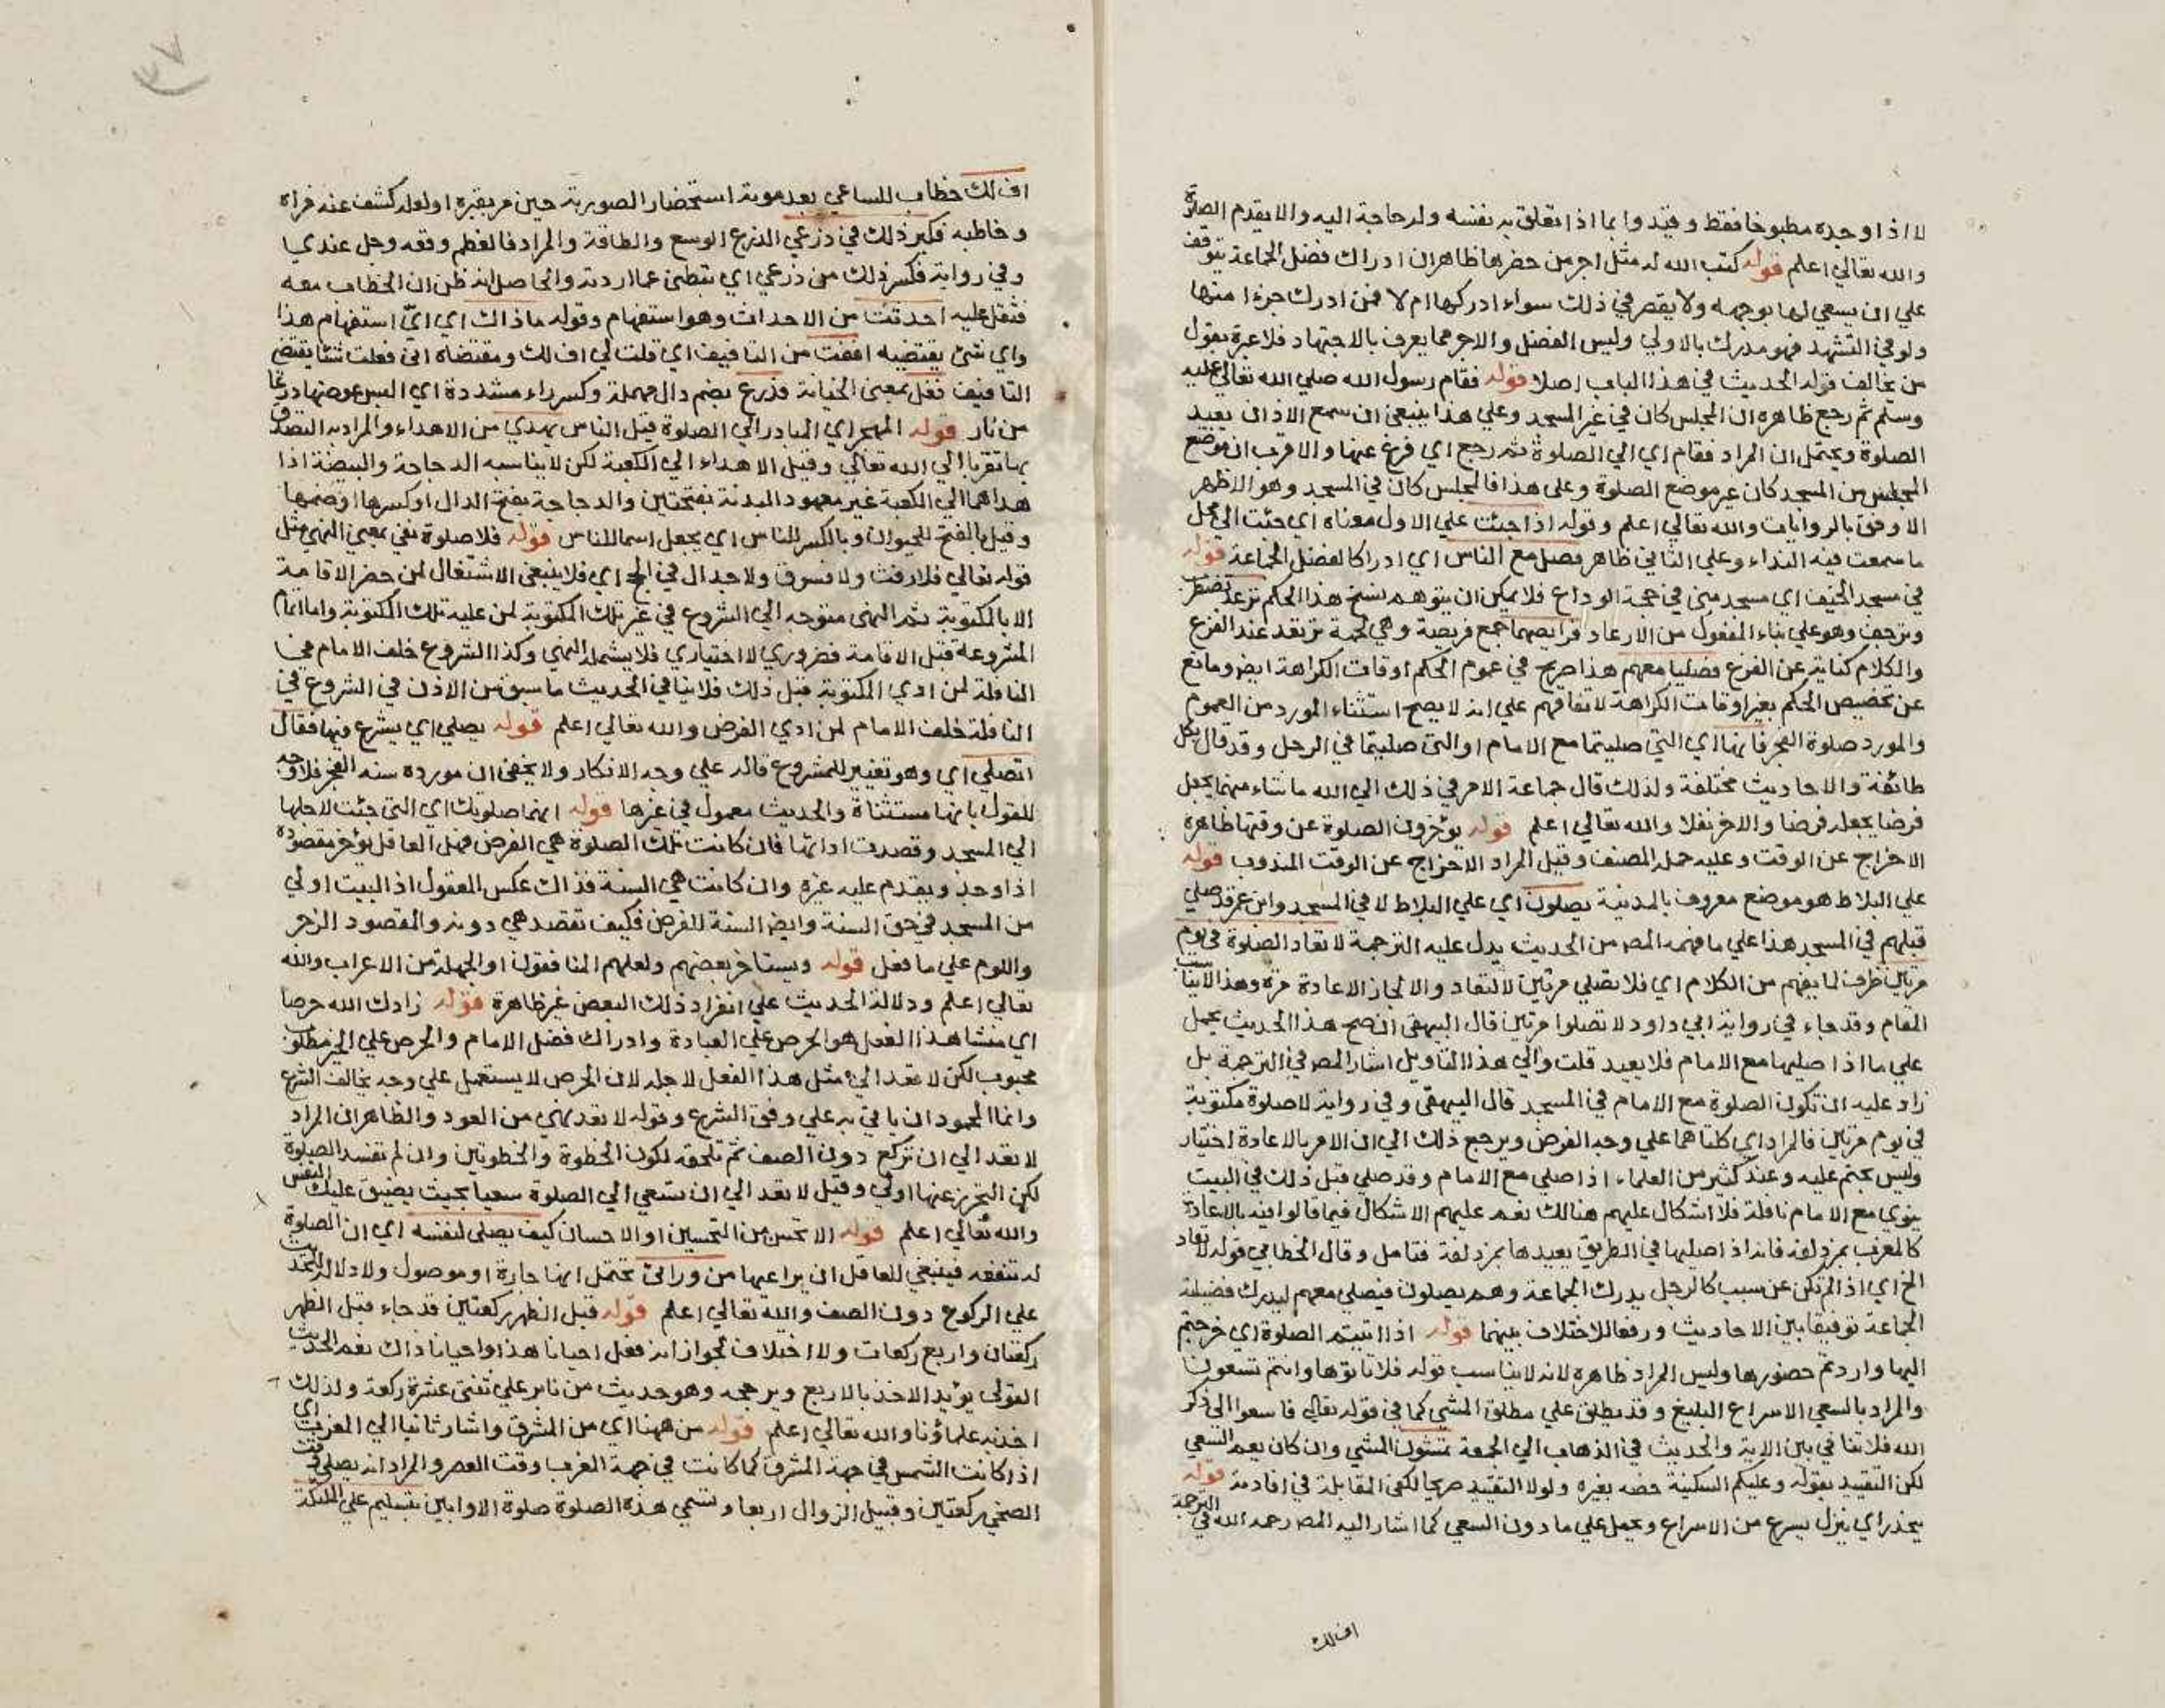 لا اذا وجده مطبوخا فقط وقيدوا بما اذا تعلق به نفسه وله حاجة اليه والا يقدم الصلوة
والله تعالي اعلم قوله كتب الله له مثل اجر من حضرها ظاهره ان ادراك فضل الجماعة يتوقف
علي ان يسعي لها بوجهه ولا يقصر في ذلك سواء ادركها ام لا فمن ادرك جزءا منها
ولو في التشهد فهو مدرك بالاولي وليس الفضل والاجر مما يعرف بالاجتهاد فلا عبرة بقول
من يخالف قوله الحديث في هذا الباب اصلا قوله فقام رسول الله صلي الله تعالي عليه
وسلم ثم رجع ظاهره ان المجلس كان في غير المسجد وعلي هذا ينبغي ان سمع الاذان يعيد
الصلوة ويحتمل ان المراد فقام اي الي الصلوة ثم رجع اي فرغ عنها والاقرب ان موضع
المجلس من المسجد كان غير موضع الصلوة وعلي هذا فالمجلس كان في المسجد وهو الاظهر
الاوفق بالروايات والله تعالي اعلم وقوله اذا جئت علي الاول معناه اي جئت الي محل
ما سمعت فيه النداء وعلي الثاني ظاهر فصل مع الناس اي ادراكا لفضل الجماعة قوله
في مسجد الخيف اي مسجد مني في حجة الوداع فلا يمكن ان يتوهم نسخ هذا الحكم ترعد تضطرب
وترجف وهو علي بناء المفعول من الارعاد فرايصهما جمع فريصة وهي لحمة ترتعد عند الفزع
والكلام كناية عن الفزع فصليا معهم هذا صريح في عموم الحكم اوقات الكراهة ايضا ومانع
عن تخصيص الحكم بغير اوقات الكراهة لاتفاقهم علي انه لا يصح استثناء المورد من العموم
والمورد صلوة الفجر فانها اي التي صليتما مع الامام او التي صليتما في الرحل وقد قال بكل
طائفة والاحاديث مختلفة ولذلك قال جماعة الامر في ذلك الي الله ما شاء منهما يجعل
فرضا يجعله فرضا والاخر نفلا والله تعالي اعلم قوله يؤخرون الصلوة عن وقتها ظاهره
الاخراج عن الوقت وعليه حمله المصنف وقيل المراد الاخراج عن الوقت المندوب قوله
علي البلاط هو موضع معروف بالمدينة يصلون اي علي البلاط لا في المسجد وابن عمر قد صلي
قبلهم في المسجد هذا علي ما فهمه المص من الحديث يدل عليه الترجمة لا تعاد الصلوة في يوم
مرتين ظرف لما يفهم من الكلام اي فلا تصلي مرتين لا لتعاد والا لجاز الاعادة مرة وهذا لا يناسب
المقام وقد جاء في رواية ابي داود لا تصلوا مرتين قال البيهقي ان صح هذا الحديث يحمل
علي ما اذا صليها مع الامام فلا يعيد قلت والي هذا التاويل اشار المص في الترجمة بل
زاد عليه ان تكون الصلوة مع الامام في المسجد قال البيهقي وفي رواية لا صلوة مكتوبة
في يوم مرتين فالمراد اي كلتاهما علي وجه الفرض ويرجع ذلك الي ان الامر بالاعادة اختيار
وليس بحتم عليه وعند كثير من العلماء اذا صلي مع الامام وقد صلي قبل ذلك في البيت
ينوي مع الامام نافلة فلا اشكال عليهم هنالك نعم عليهم الاشكال فيما قالوا فيه بالاعادة
كالمغرب بمزدلفة فانه اذا صليها في الطريق يعيدها بمزدلفة فتامل وقال الخطابي قوله لا تعاد
الخ اي اذا لم تكن عن سبب كالرجل يدرك الجماعة وهم يصلون فيصلي معهم ليدرك فضيلة
الجماعة توفيقا بين الاحاديث ورفعا للاختلاف بينهما قوله اذا اتيتم الصلوة اي خرجتم
اليها واردتم حضورها وليس المراد ظاهره لانه لا يناسب قوله فلا تاتوها وانتم تسعون
والمراد بالسعي الاسراع البليغ وقد يطلق علي مطلق المشي كما في قوله تعالي فاسعوا الي ذكر
الله فلا تنافي بين الاية والحديث في الذهاب الي الجمعة تمشون المشي وان كان يعم السعي
لكن التقييد بقوله وعليكم السكينة خصه بغيره ولولا التقييد صريحا لكفي المقابلة في افادته قوله
ينحدر اي ينزل يسرع من الاسراع ويحمل علي ما دون السعي كما اشار اليه المص رحمه الله في الترجمة
اف لك
اف لك خطاب للساعي بعد موته استحضارا لصورته حين مر بقبره او لعله كشف عنه فراه
وخاطبه فكبر ذلك في ذرعي الذرع الوسع والطاقة والمراد فالعظم وقعه وجل عندي
وفي رواية فكسر ذلك من ذرعي اي ثبطني عما اردته والحاصل انه ظن ان الخطاب معه
فثقل عليه احدثت من الاحداث وهو استفهام وقوله ماذاك اي ايّ استفهام هذا
واي شئ يقتضيه اففت من التافيف اي قلت لي اف لك ومقتضاه اني فعلت شئا يقتضي
التافيف فغل بمعني الخيانة فدرع بضم دال مهملة وكسر راء مشددة اي البس عوضها درعا
من نار قوله المهجر اي المبادر الي الصلوة قبل الناس يهدي من الاهداء والمراد به التصدق
بها تقربا الي الله تعالي وقيل الاهداء الي الكعبة لكن لا يناسبه الدجاجة والبيضة اذا
هداهما الي الكعبة غير معهود البدنة بفتحتين والدجاجة بفتح الدال او كسرها او ضمها
وقيل بالفتح للحيوان وبالكسر للناس اي يجعل اسما للناس قوله فلا صلوة نفي بمعني النهي مثل
قوله تعالي فلا رفث ولا فسوق ولا جدال في الحج اي فلا ينبغي الاشتغال لمن حضر الاقامة
الا بالمكتوبة ثم النهي متوجه الي الشروع في غير تلك المكتوبة لمن عليه تلك المكتوبة واما اتمام
المشروعة قبل الاقامة فضروري لا اختياري فلا يشمله النهي وكذا الشروع خلف الامام في
النافلة لمن ادي المكتوبة قبل ذلك فلا ينافي الحديث ما سبق من الاذن في الشروع في
النافلة خلف الامام لمن ادي الفرض والله تعالي اعلم قوله يصلي اي يشرع فيها فقال
اتصلي اي وهو تغيير للمشروع قاله علي وجه الانكار ولا يخفي ان مورده سنة الفجر فلا وجه
للقول بانها مستثناة والحديث معمول في غيرها قوله ايهما صلوتك اي التي جئت لاجلها
الي المسجد وقصدت ادائها فان كانت تلك الصلوة هي الفرض فهل العاقل يؤخر مقصوده
اذا وجد ويقدم عليه غيره وان كانت هي السنة فذاك عكس المعقول اذ البيت اولي
من المسجد في حق السنة وايضا السنة للفرض فكيف تقصد هي دونه والمقصود الزجر
واللوم علي ما فعل قوله ويستاخر بعضهم ولعلهم المنافقون او الجهلة من الاعراب والله
تعالي اعلم ودلالة الحديث علي انفراد ذلك البعض غير ظاهرة قوله زادك الله حرصا
اي منشا هذا الفعل هو الحرص علي العبادة وادراك فضل الامام والحرص علي الخير مطلوب
محبوب لكن لا تعد الي مثل هذا الفعل لاجله لان الحرص لا يستعمل علي وجه يخالف الشرع
وانما المحمود ان ياتي به علي وفق الشرع وقوله لا تعد نهي من العود والظاهر ان المراد
لا تعد الي ان تركع دون الصف ثم تلحقه لكون الخطوة والخطوتين وان لم تفسد الصلوة
لكن التحرز عنها اولي وقيل لا تعد الي ان تسعي الي الصلوة سعيا بحيث يضيق عليك النفس
والله تعالي اعلم قوله الا تحسن من التحسين او الاحسان كيف يصلي لنفسه اي ان الصلوة
له تنفعه فينبغي للعاقل ان يراعيها من ورائي تحتمل انها جارة او موصول ولا دلالة للحديث
علي الركوع دون الصف والله تعالي اعلم قوله قبل الظهر ركعتين قد جاء قبل الظهر
ركعتان واربع ركعات ولا اختلاف لجواز انه فعل احيانا هذا واحيانا ذاك نعم الحديث
القولي يؤيد الاخذ بالاربع ويرجحه وهو حديث من ثابر علي ثنتي عشرة ركعة ولذلك
اخذ به علماؤنا والله تعالي اعلم قوله من ههنا اي من المشرق واشار ثانيا الي المغرب اي
اذا كانت الشمس في جهة المشرق كما كانت في جهة المغرب وقت العصر والمراد انه يصلي وقت
الضحي ركعتين وقبيل الزوال اربعا وتسمي هذه الصلوة صلوة الاوابين بتسليم علي الملئكة